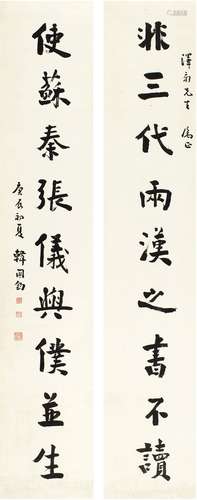 澤先生 正
非三代兩漢之書不讀
使蘇秦張儀與僕並生
庚辰初夏 韓國鈞